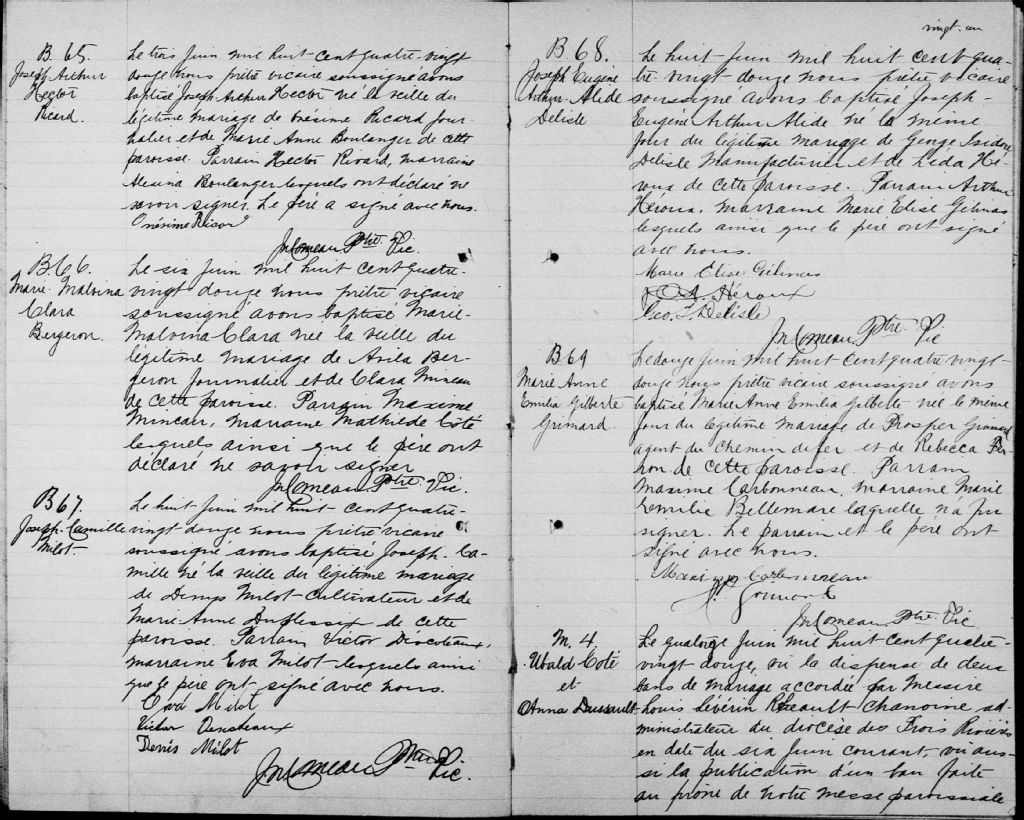 B 65.
Joseph Arthur
Hector
Ricard.
Le trois Juin mil huit-cent quatre-vingt
douze nous prêtre vicaire soussigné avons
baptisé Joseph Arthur Hector né la veille du
légitime mariage de Onésime Ricard jour
nalier et de Marie Anne Boulanger de cette
paroisse. Parrain Hector Rivard, marraine
Alexina Boulanger lesquels ont déclaré ne
savoir signer. Le père a signé avec nous.
Onésime
J. Comeau Ptre. Vic.
B 66.
Marie-Malvina
Clara
Bergeron.
Le six Juin mil huit centquatre-
vingt douze nous prêtre vicaire
soussigné avons baptisé Marie-
Malvina Clara née la veille du
légitime mariage de Avila Ber-
geron Journalier et de Clara Mineau
de cette paroisse. Parrain Maxime
Mineau, Marraine Mathilde Côté
lesquels ainsi que le père ont
déclaré ne savoir signer
J. Comeau Ptre. Vic.
B 67.
Joseph-Camille
Milot
Le huit Juin mil huit-centquatre-
vingt douze nous prêtre vicaire
soussigné avons baptisé Joseph-Ca-
mille né la veille du légitime mariage
de Denys Milot cultivateur et de
Marie-Anne Duplessis de cette
paroisse. Parrain Victor
marraine Eva Milot-lesquels ainsi
que le père ont signé avec nous.
Eva Milot
Victor
Denis Milot
J. Comeau Ptre Vic.
vingt-un
B 68.
Joseph Eugène
Arthur-Alide
Delisle
Le huit Juin mil huit cent qua-
tre vingt douze nous prêtre vicaire
soussigné avons baptisé Joseph-
Eugène Arthur Alide né le même
jour du légitime mariage de George Isidore
Delisle Manufacturier et de Léda Hé-
roux de cette paroisse. Parrain Arthur
Héroux, marraine Marie Elise Gélinas
lesquels ainsi que le père ont signé
avec nous.
Marie Elise Gélinas
A. Héroux
Geo. I. Delisle
J. Comeau Ptre. Vic
B 69
Marie Anne
Emilia Gilberte
Grimard.
Le douze Juin mil huit centquatre vingt-
douze nous prêtre vicaire soussigné avons
baptisé Marie Anne Emilia Gilberte née le même
jour du légitime mariage de Prosper Grimard
agent du chemin de fer et de Rebecca
de cette paroisse. Parrain
Maxime Carbonneau, marraine Marie
Emilie Bellemare laquelle n'a pu
signer. Le parrain et le père ont
signé avec nous.
Maxime Carbonneau
P. Grimard
J. Comeau Ptre. Vic.
M. 4
Ubald Coté
et
Anna Dussault
Le quatorze Juin mil huit cent quatre-
vingt douze, vu la dispense de deux
bans de mariage accordée par Messire
Louis Sévérin Rheault Chanoine ad-
ministrateur du diocèse des Trois Rivières
en date du six Juin courant, vu aus-
si la publication d'un ban faite
au prône de notre messe paroissiale